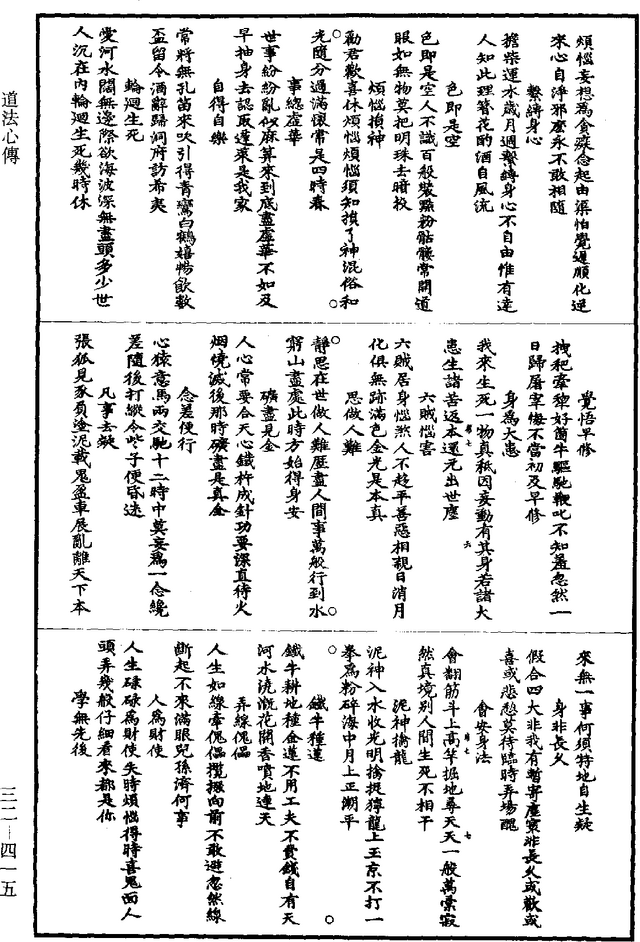 煩惱妄想為貪癡念起由渠怕覺遲順化逆
來心自淨邪魔永不敢相隨
繫縛身心
擔柴運水歲月週繫縛身心不自由惟有達
人知此理簪花酌酒自風流
色即是空
色即是空人不識百般裝點粉骷髏常開道
眼如無物莫把明珠去暗投
煩惱損神
勸君歡喜休煩惱煩惱須知損了神混俗和
光隨分過滿懷常是四時春
事總虛華
世事紛紛亂似麻算來到底盡虛華不如及
早抽身去認取蓬萊是我家
自得自樂
常將無孔笛來吹引得青鸞白鶴嬉暢飲數
盃留令酒辭歸洞府訪希夷
輪迴生死
愛河水闊無邊際欲海波深無盡頭多少世
人沉在內輪迴生死幾時休
覺悟早修
拽耙牽犁好箇牛驅馳鞭叱不知羞忽然一
日歸屠宰悔不當初及早修
身為大患
我來生死一物真秖因妄動有其身若諸大
患生諸苦返本還元出世塵
六賊惱害
六賊居身惱煞人不趍平善惡相親日消月
化俱無跡滿色金光是本真
思做人難
靜思在世做人難歷盡人間事萬般行到水
窮山盡處此時方始得身安
礦盡見金
人心常要合天心鐵杵成針功要深直待火
烟燒滅後那時礦盡是真金
念差便行
心猿意馬兩交馳十二時中莫妄為一念纔
差隨後打縱令些子便昏迷
凡事去疑
張狐見豕負塗泥載鬼盈車展亂離天下本
來無一事何須特地自生疑
身非長久
假合四大非我有暫寄塵寰非長久或歡或
喜或悲愁莫待臨時弄場醜
會安身法
會翻筋斗上高竿掘地尋天天一般萬彙寂
然真境別人間生死不相干
泥神擒龍
泥神入水收光明擒捉獰龍上玉京不打一
拳為粉碎海中月上正潮平
鐵牛種蓮
鐵牛耕地種金蓮不用工夫不費錢自有天
河水澆漑花開香噴地連天
弄線傀儡
人生如線牽傀儡攬掇向前不敢避忽然線
斷起不來滿眼兒孫濟何事
人為財使
人生碌碌為財使失時煩惱得時喜鬼面人
頭弄幾般仔細看來都是你
學無先後
道法心傳
三二—四一五